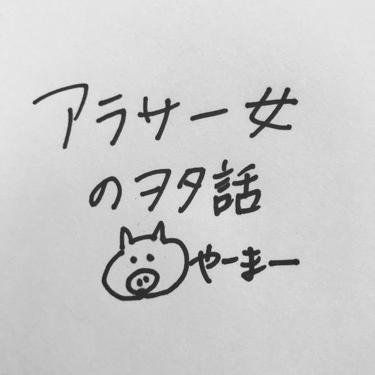 アラサー女
のヲタ話
やーまー